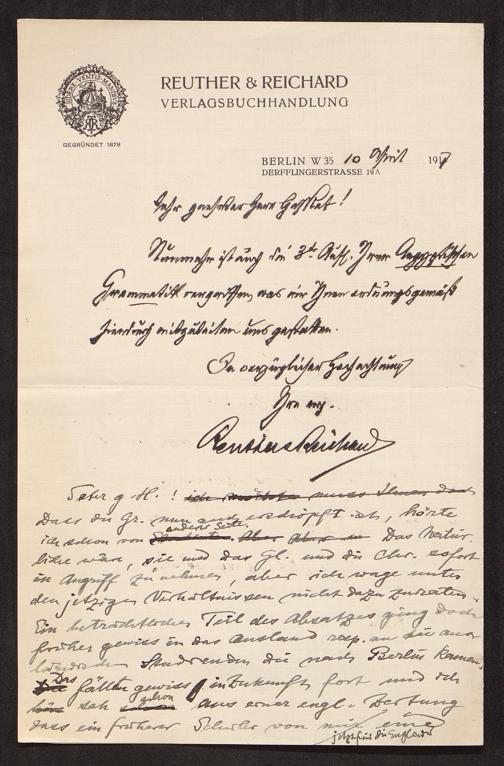 GEGRÜNDET 1878
REUTHER & REICHARD
VERLAGSBUCHHANDLUNG
BERLIN W 35 10 April 1917
DERFFLINGERSTRASSE 19A
Sehr geehrter Herr
Nunmehr ist auch die 3te Aufl. Ihrer Aegyptischen
Grammatik vergriffen, was wir Ihnen ordnungsgemäß
hierdurch mitzuteilen uns gestatten.
In vorzüglicher Hochachtung
Ihre erg.
Reuther & Reichard
Sehr g. H.! ich möchte Ihnen doch
Dass die Gr. nun auch erschöpft ist, hörte
andere Seite
ich schon von Das Natür-
liche wäre, sie und das Gl. und die Chr. sofort
in Angriff zu nehmen, aber ich wage unter
den jetzigen Verhältnissen nicht dazu zuraten.
Ein beträchtlicher Teil des Absatzes ging doch
früher gewiss in das Ausland resp. an die aus-
ländischen Studierenden die nach Berlin kamen.
Das fällt gewiss in Zukunft fort und ich
schon
sah aus einer engl. Zeitung
dass ein früherer Schüler von mir eine
jetzt für die Engländer